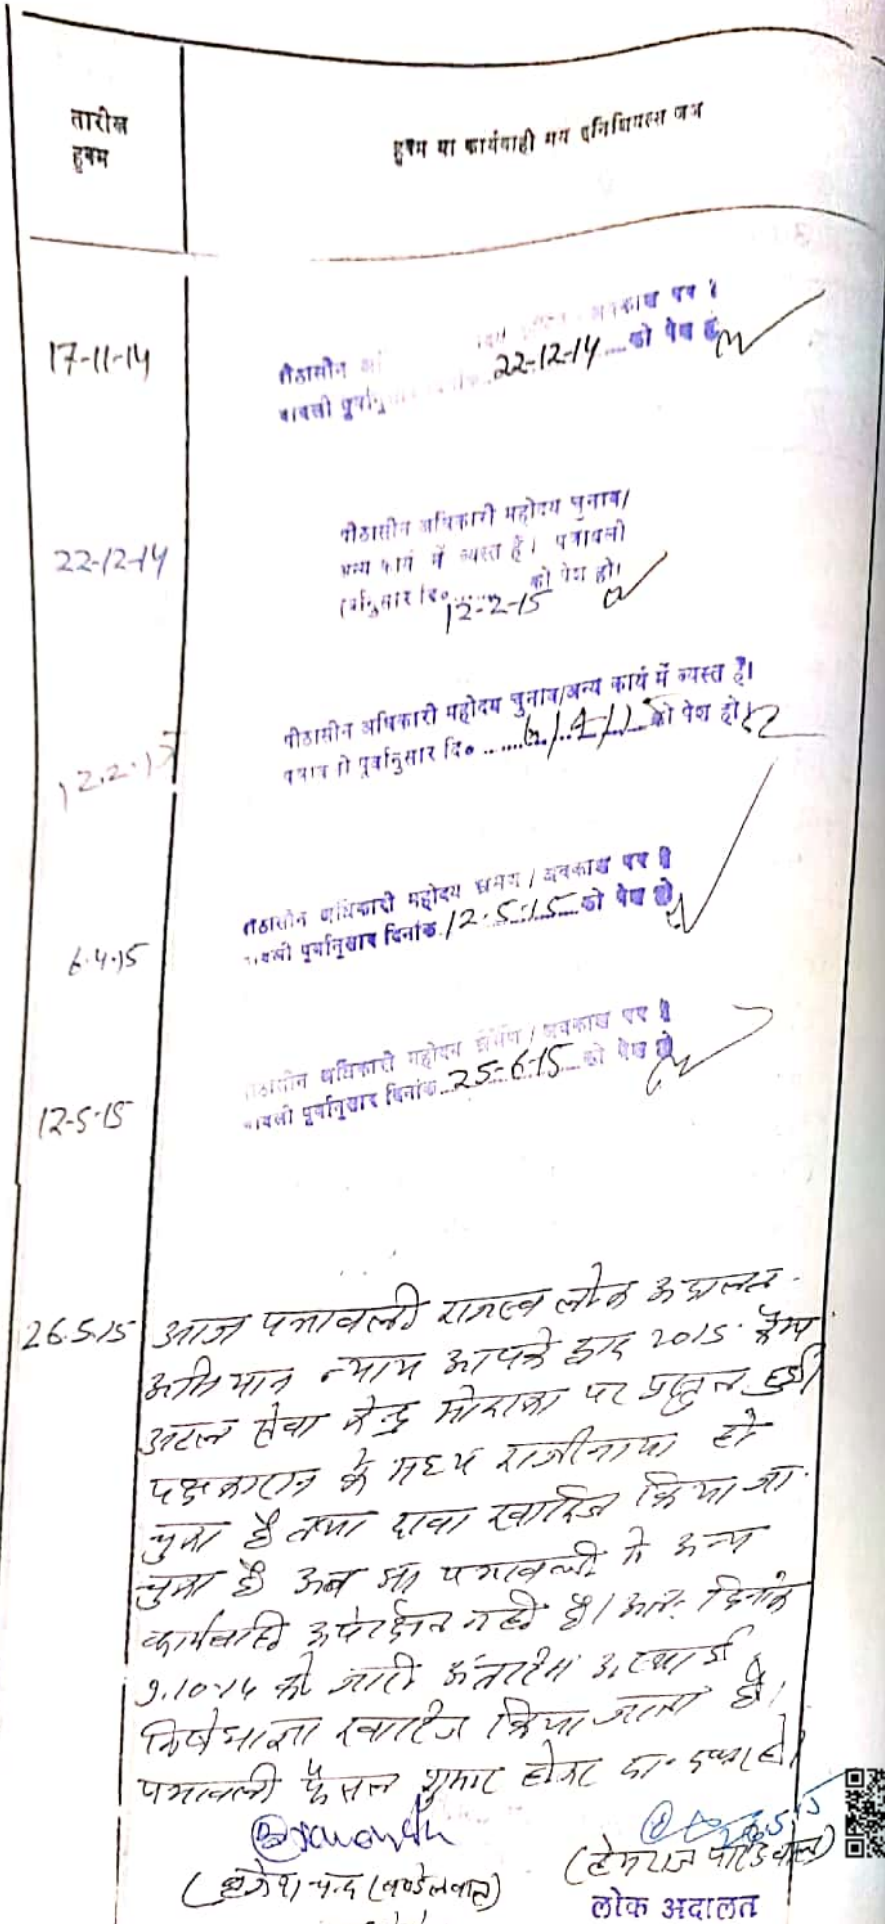 तारीख
हुक्म
हुक्म या कार्यवाही मय इनिशियल्स जज
17-11-14
अवकाश पर है
पीठासीन 22-12-14 को पेश हो
पूर्वानुसार
22-12-14
पीठासीन अधिकारी महोदय चुनाव/
अन्य कार्य में व्यस्त हैं। पत्रावली
पूर्वानुसार दि० को पेश हो।
12-2-15
12.2.15
पीठासीन अधिकारी महोदय चुनाव/अन्य कार्य में व्यस्त हैं।
पूर्वानुसार दि० 6/4/15 को पेश हो।
6.4.15
पीठासीन अधिकारी महोदय भ्रमण / अवकाश पर है
पूर्वानुसार दिनांक 12.5.15 को पेश हो
12-5-15
पीठासीन अधिकारी महोदय भ्रमण / अवकाश पर है
पूर्वानुसार दिनांक 25-6-15 को पेश हो
26.5.15 आज पत्रावली राजस्व लोक अदालत
अभियान न्याय आपके द्वार 2015 कैम्प
अटल सेवा केन्द्र पर प्रस्तुत हुई।
पक्षकारान के मध्य राजीनामा हो
चुका है तथा दावा खारिज किया जा
चुका है अब पत्रावली में अन्य
कार्यवाही अपेक्षित नहीं है। अतः दिनांक
9.10.14 को जारी अंतरिम अस्थाई
निषेधाज्ञा खारिज किया जाता है।
पत्रावली फैसल शुमार होकर दा. दफ्तर हो।
26.5.15
लोक अदालत